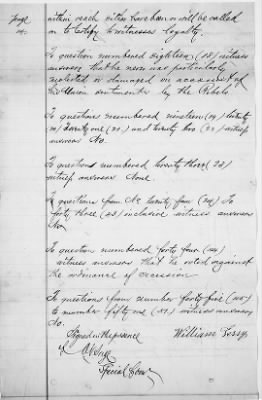 Page
14.
within reach either have been or will be called
on to testify to witnesses loyalty.
To question numbered eighteen (18) witness
answers that he was not particularly
molested or damaged on account of
his Union sentiments by the Rebels
To questions numbered nineteen (19) twenty
twenty one (21) and twenty two (22) witness
answers No.
To questions numbered twenty three (23)
witness answers None
To questions from No twenty four (24) to
forty three (43) inclusive witness answers
No
To question numbered forty four (44)
witness answers that he voted against
the ordinance of secession
To questions from number forty five (45)
to number fifty one (51) witness answers
No.
Signed in the presence
of
William
Special Com